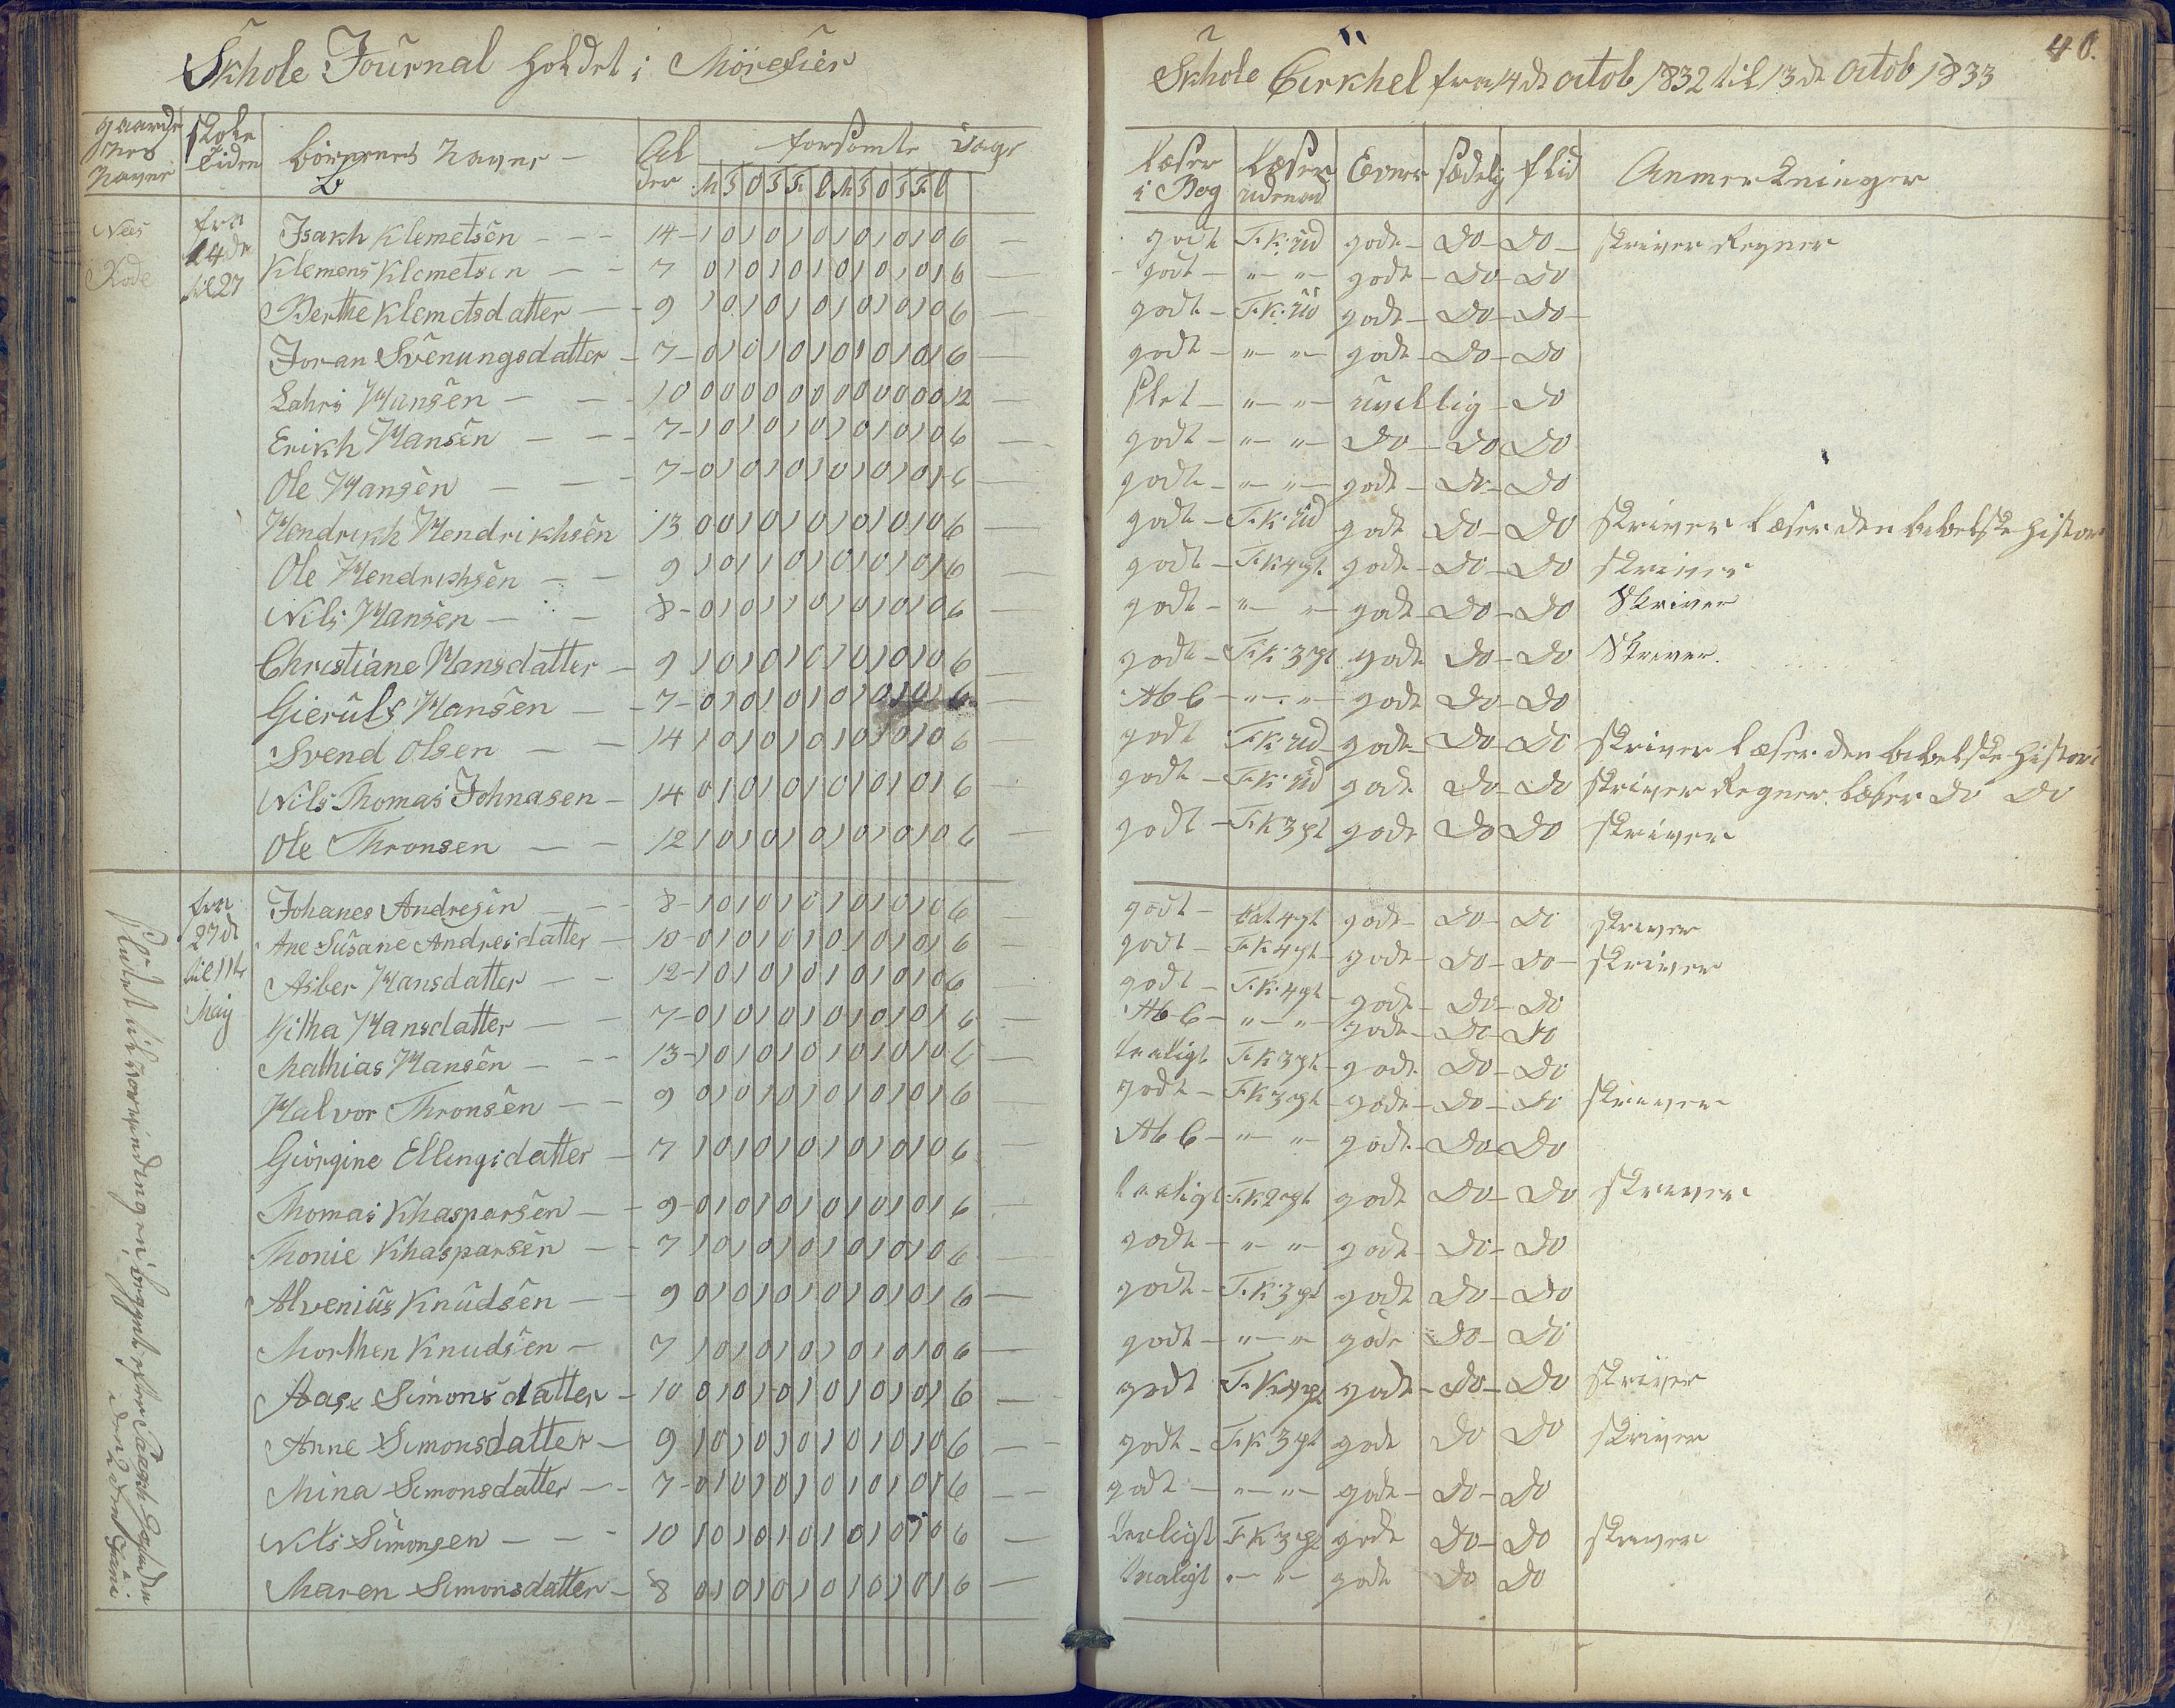 Skhole Journal holdet i Mörefier
Skhole Cirkhel fra 14 de octob 1832 til 13 de octob 1833
40.
gaarde nes navne | skole tiden | börnenes navne | Al der | forsömte Dage | M T O T F L M T O T F L
læser i Bog | læser udenad | Evner | sædelig | flid | Anmerkninger
fra 14 de til 27
Isakh Klemetsen 14 1 0 1 0 1 0 1 0 1 0 1 0 6 godt F. K. ud gode Do Do skriver Regner
Klemens Klemetsen 7 0 1 0 1 0 1 0 1 0 1 0 1 6 godt " " gode Do Do
Berthe Klemetsdatter 9 1 0 1 0 1 0 1 0 1 0 1 0 6 godt F. K. ud gode Do Do
Joran Svenungsdatter 7 0 1 0 1 0 1 0 1 0 1 0 1 6 godt " " gode Do Do
Lahrs Hansen 10 0 0 0 0 0 0 0 0 0 0 0 0 12 slet " " uvillig Do
Erikh Hansen 7 1 0 1 0 1 0 1 0 1 0 1 0 6 godt " " Do Do Do
Ole Hansen 7 0 1 0 1 0 1 0 1 0 1 0 1 6 godt " " gode Do Do
Hendrikh Hendrikhsen 13 0 0 1 0 1 0 1 0 1 0 1 0 6 godt F. K. ud gode Do Do skriver læser den bibelske histori
Ole Hendrikhsen 9 1 0 1 1 0 1 0 1 0 1 0 1 6 godt F K 4 pt gode Do Do skriver
Nils Hansen 8 0 1 0 1 1 0 1 0 1 0 1 0 6 godt " " gode Do Do Skriver
Christiane Hansdatter 9 1 0 1 0 1 0 1 0 1 0 1 0 6 godt F. K. 3 pt gode Do Do Skriver.
Gieruls Hansen 7 0 1 0 1 0 1 0 1 0 1 0 1 6 Ab C " " gode Do Do
Svend Olsen 14 1 0 1 0 1 0 1 0 1 0 1 0 6 godt F K. ud gode Do Do skriver læser den bibelske histori
Nils Thomas Johnasen 14 0 1 0 1 0 1 0 1 0 1 0 1 6 godt F. K. ud gode Do Do skriver Regner læser Do Do
Ole Thronsen 12 1 0 1 0 1 0 1 0 1 0 1 0 6 godt F. K 3 pt gode Do Do skriver
fra 27 de til 11te Maij
Johanes Andresen 8 1 0 1 0 1 0 1 0 1 0 1 0 6 godt Kat 4 pt gode Do Do skriver
Ane Susane Andreidatter 10 0 1 0 1 0 1 0 1 0 1 0 1 6 godt F. K 4 pt gode Do Do skriver
Asber Hansdatter 12 1 0 1 0 1 0 1 0 1 0 1 0 6 godt F. K. 4 pt gode Do Do
Kitha Hansdatter 7 0 1 0 1 0 1 0 1 0 1 0 1 6 Ab C " " gode Do Do
Mathias Hansen 13 1 0 1 0 1 0 1 0 1 0 1 0 6 taaligt F. K 3 pt gode Do Do
Halvor Thronsen 9 0 1 0 1 0 1 0 1 0 1 0 1 6 godt F. K 3 pt gode Do Do skriver
Giörgine Ellingsdatter 7 1 0 1 0 1 0 1 0 1 0 1 0 6 Ab C " " gode Do Do
Thomas Khasparsen 9 0 1 0 1 0 1 0 1 0 1 0 1 6 taaligt F. K 2 pt gode Do Do skriver
Thonie Khasparsen 7 1 0 1 0 1 0 1 0 1 0 1 0 6 godt " " gode Do Do
Alvenius Knudsen 9 0 1 0 1 0 1 0 1 0 1 0 1 6 godt F. K. 3 pt gode Do Do
Morthen Knudsen 7 1 0 1 0 1 0 1 0 1 0 1 0 6 godt " " gode Do Do
Aase Simonsdatter 10 0 1 0 1 0 1 0 1 0 1 0 1 6 godt F. K 4 pt gode Do Do skriver
Anne Simonsdatter 9 1 0 1 0 1 0 1 0 1 0 1 0 6 godt F. K 3 pt gode Do Do skriver
Mina Simonsdatter 7 0 1 0 1 0 1 0 1 0 1 0 1 6 godt " " gode Do Do
Nils Simonsen 10 1 0 1 0 1 0 1 0 1 0 1 0 6 taaligt F. K 3 pt gode Do Do skriver
Maren Simonsdatter 8 0 1 0 1 0 1 0 1 0 1 0 1 6 taaligt " " gode Do Do